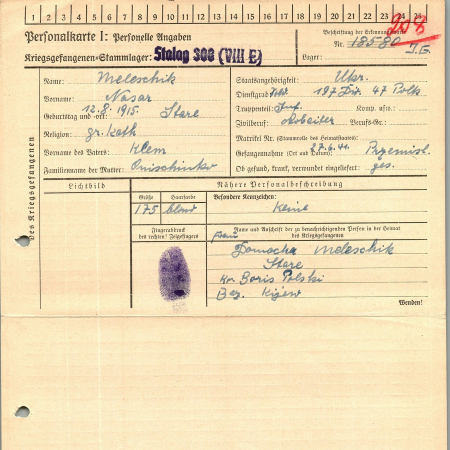 1 2 3 4 5 6 7 8 9 10 11 12 13 14 15 16 17 18 19 20 21 22 23 24 25
Personalkarte I: Personelle Angaben
Kriegsgefangenen-Stammlager: Stalag 308 (VIII E)
Beschriftung der Erkennungsmarke
Nr. 18580
Lager:
308
J.G.
Des Kriegsgefangenen
Name: Meleschik
Vorname: Nasar
Geburtstag und -ort: 12.8.1915. Stare
Religion: gr. kath
Vorname des Vaters: Klem
Familienname der Mutter: Onischinko
Staatsangehörigkeit: Ukr.
Dienstgrad: 197 Div. 47 Polk
Truppenteil: Inf. Komp. usw.:
Zivilberuf: Arbeiter Berufs-Gr.:
Matrikel Nr. (Stammrolle des Heimatstaates):
Gefangennahme (Ort und Datum): 27.6.41. Przemisl.
Ob gesund, krank, verwundet eingeliefert: ges.
Lichtbild
Nähere Personalbeschreibung
Größe Haarfarbe
175 blond
Besondere Kennzeichen:
Keine
Fingerabdruck
des rechten! Zeigefingers
Name und Anschrift der zu benachrichtigenden Person in der Heimat
des Kriegsgefangenen
Frau
Domacha Meleschik
Stare
Kr. Boris Polski
Bez. Kijew
Wenden!